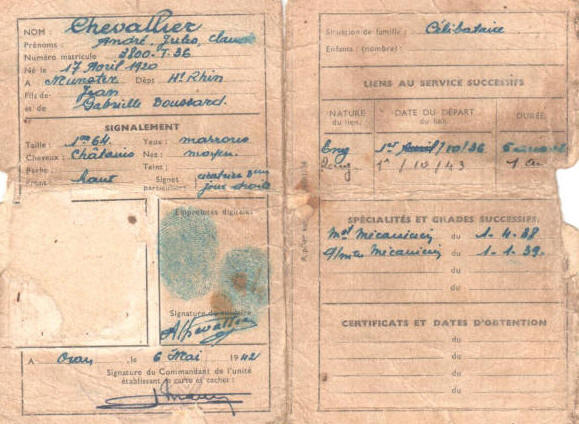 NOM : Chevallier
Prénoms : André, Jules, Claude
Numéro matricule 3800.T.36
Né le 17 Avril 1920
A Munster Dépt Ht Rhin
Fils de Jean
et de Gabrielle Doussard.
SIGNALEMENT
Taille : 1m 64 Yeux : marrons
Cheveux : Châtains Nez : moyen.
Barbe : Teint :
Front : haut Signes particuliers : cicatrice
joue droite
Empreintes digitales
Signature du titulaire
AChevallier
A Oran, le 6 Mai 1942
Signature du Commandant de l'unité
établissant la carte et cachet :
Situation de famille : Célibataire
Enfants : (nombre) :
LIENS AU SERVICE SUCCESSIFS
NATURE du lien. DATE DU DÉPART du lien. DURÉE
Eng 1er Avril/10/36 5 ans
Reng. 1er/10/43 1 an
SPÉCIALITÉS ET GRADES SUCCESSIFS.
Mot Mécanicien du 1.4.38
Mécanicien du 1.1.39.
du
du
CERTIFICATS ET DATES D'OBTENTION
du
du
du
du